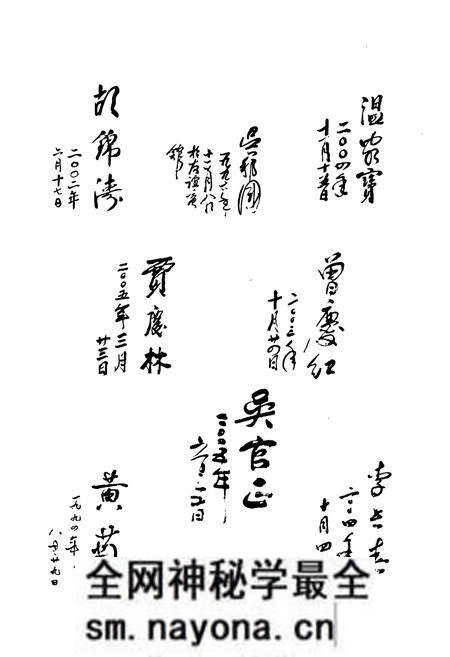 温家寶
二〇〇四年
吴邦國
一九九六年
十一月八日
於友谊宾
館
胡錦濤
二〇〇二年
六月十七日
曾慶红
二〇〇三年
十月廿四日
賈慶林
二〇〇五年三月
廿三日
吴官正
二〇〇五年
李长春
二〇〇四年
十月四
黄菊
一九九四年
八月廿九日
全网神秘学最全
sm.nayona.cn